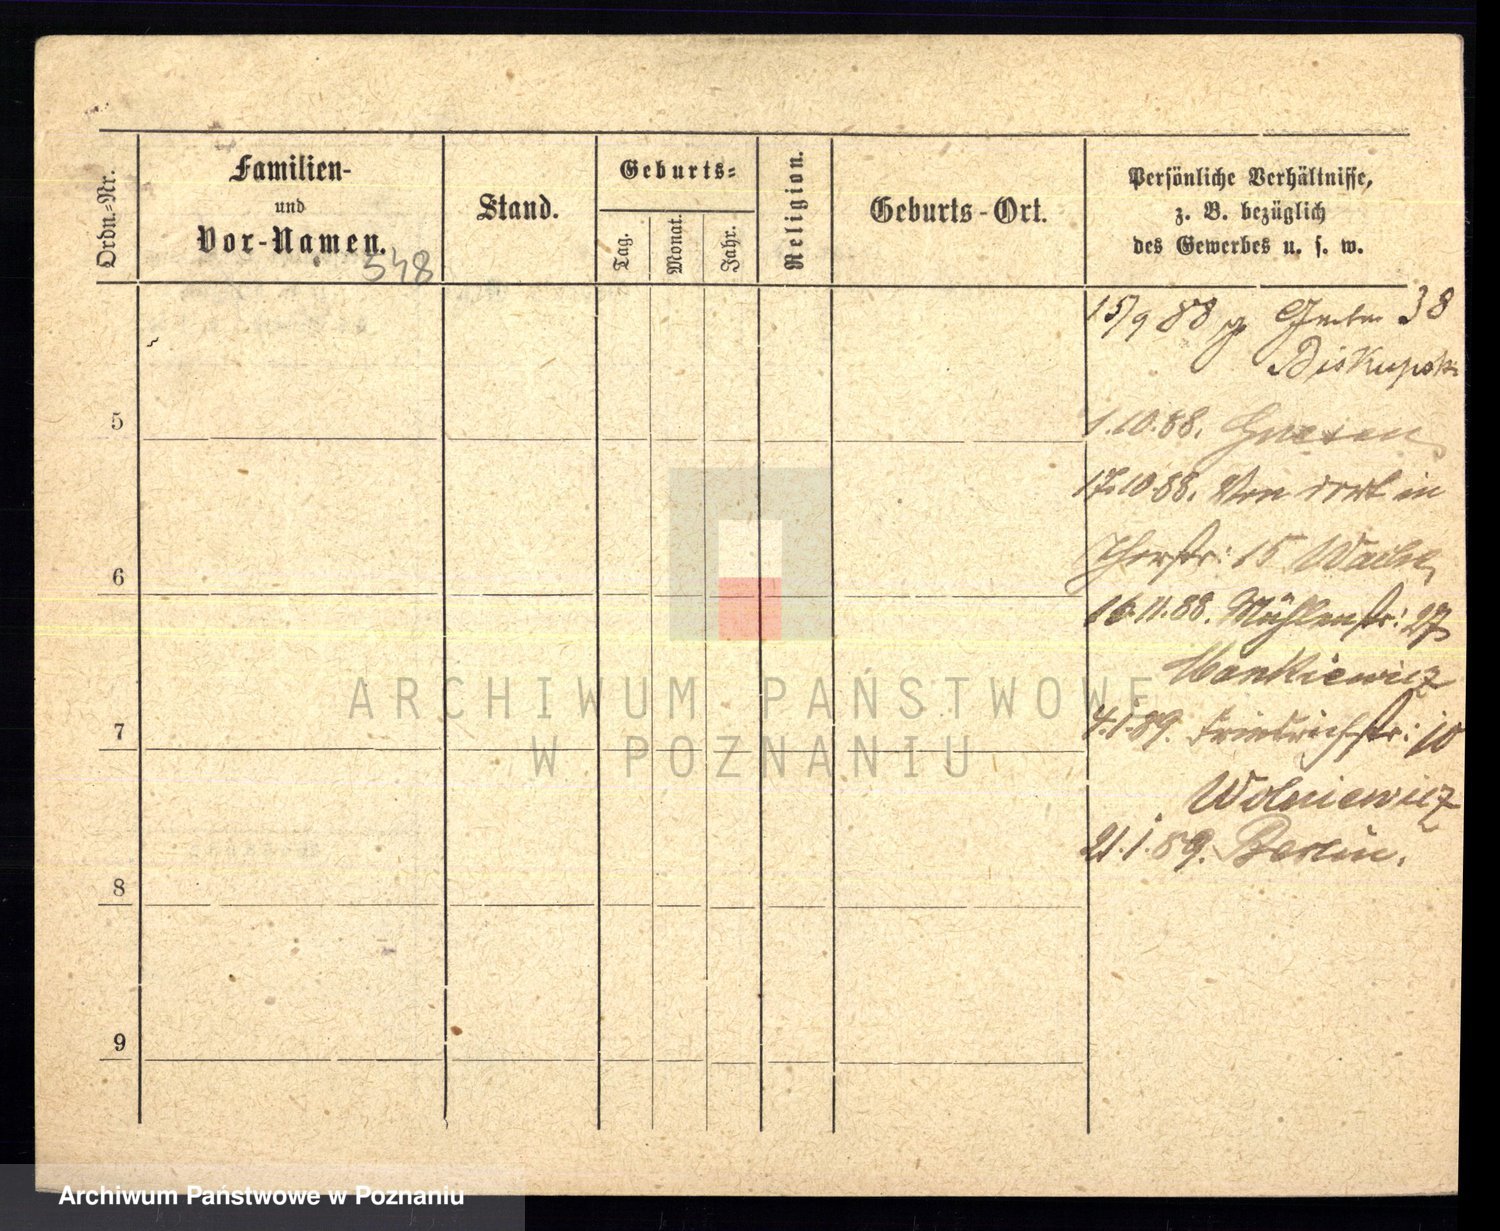 Ordn.-Nr.
Familien-
und
Vor-Namen.
548
Stand.
Geburts-
Tag.
Monat.
Jahr.
Religion.
Geburts-Ort.
Persönliche Verhältnisse,
z. B. bezüglich
des Gewerbes u. s. w.
15/9 88 38
Biskupski
5
1.10.88. Gnesen
17.10.88. Von dort in
15
6
16.11.88. Mühlenstr: 27
Mankiewicz
7
4.1.89. Friedrichstr: 10
Wolniewicz
21.1.89. Berlin.
8
9
ARCHIWUM PAŃSTWOWE
W POZNANIU
Archiwum Państwowe w Poznaniu